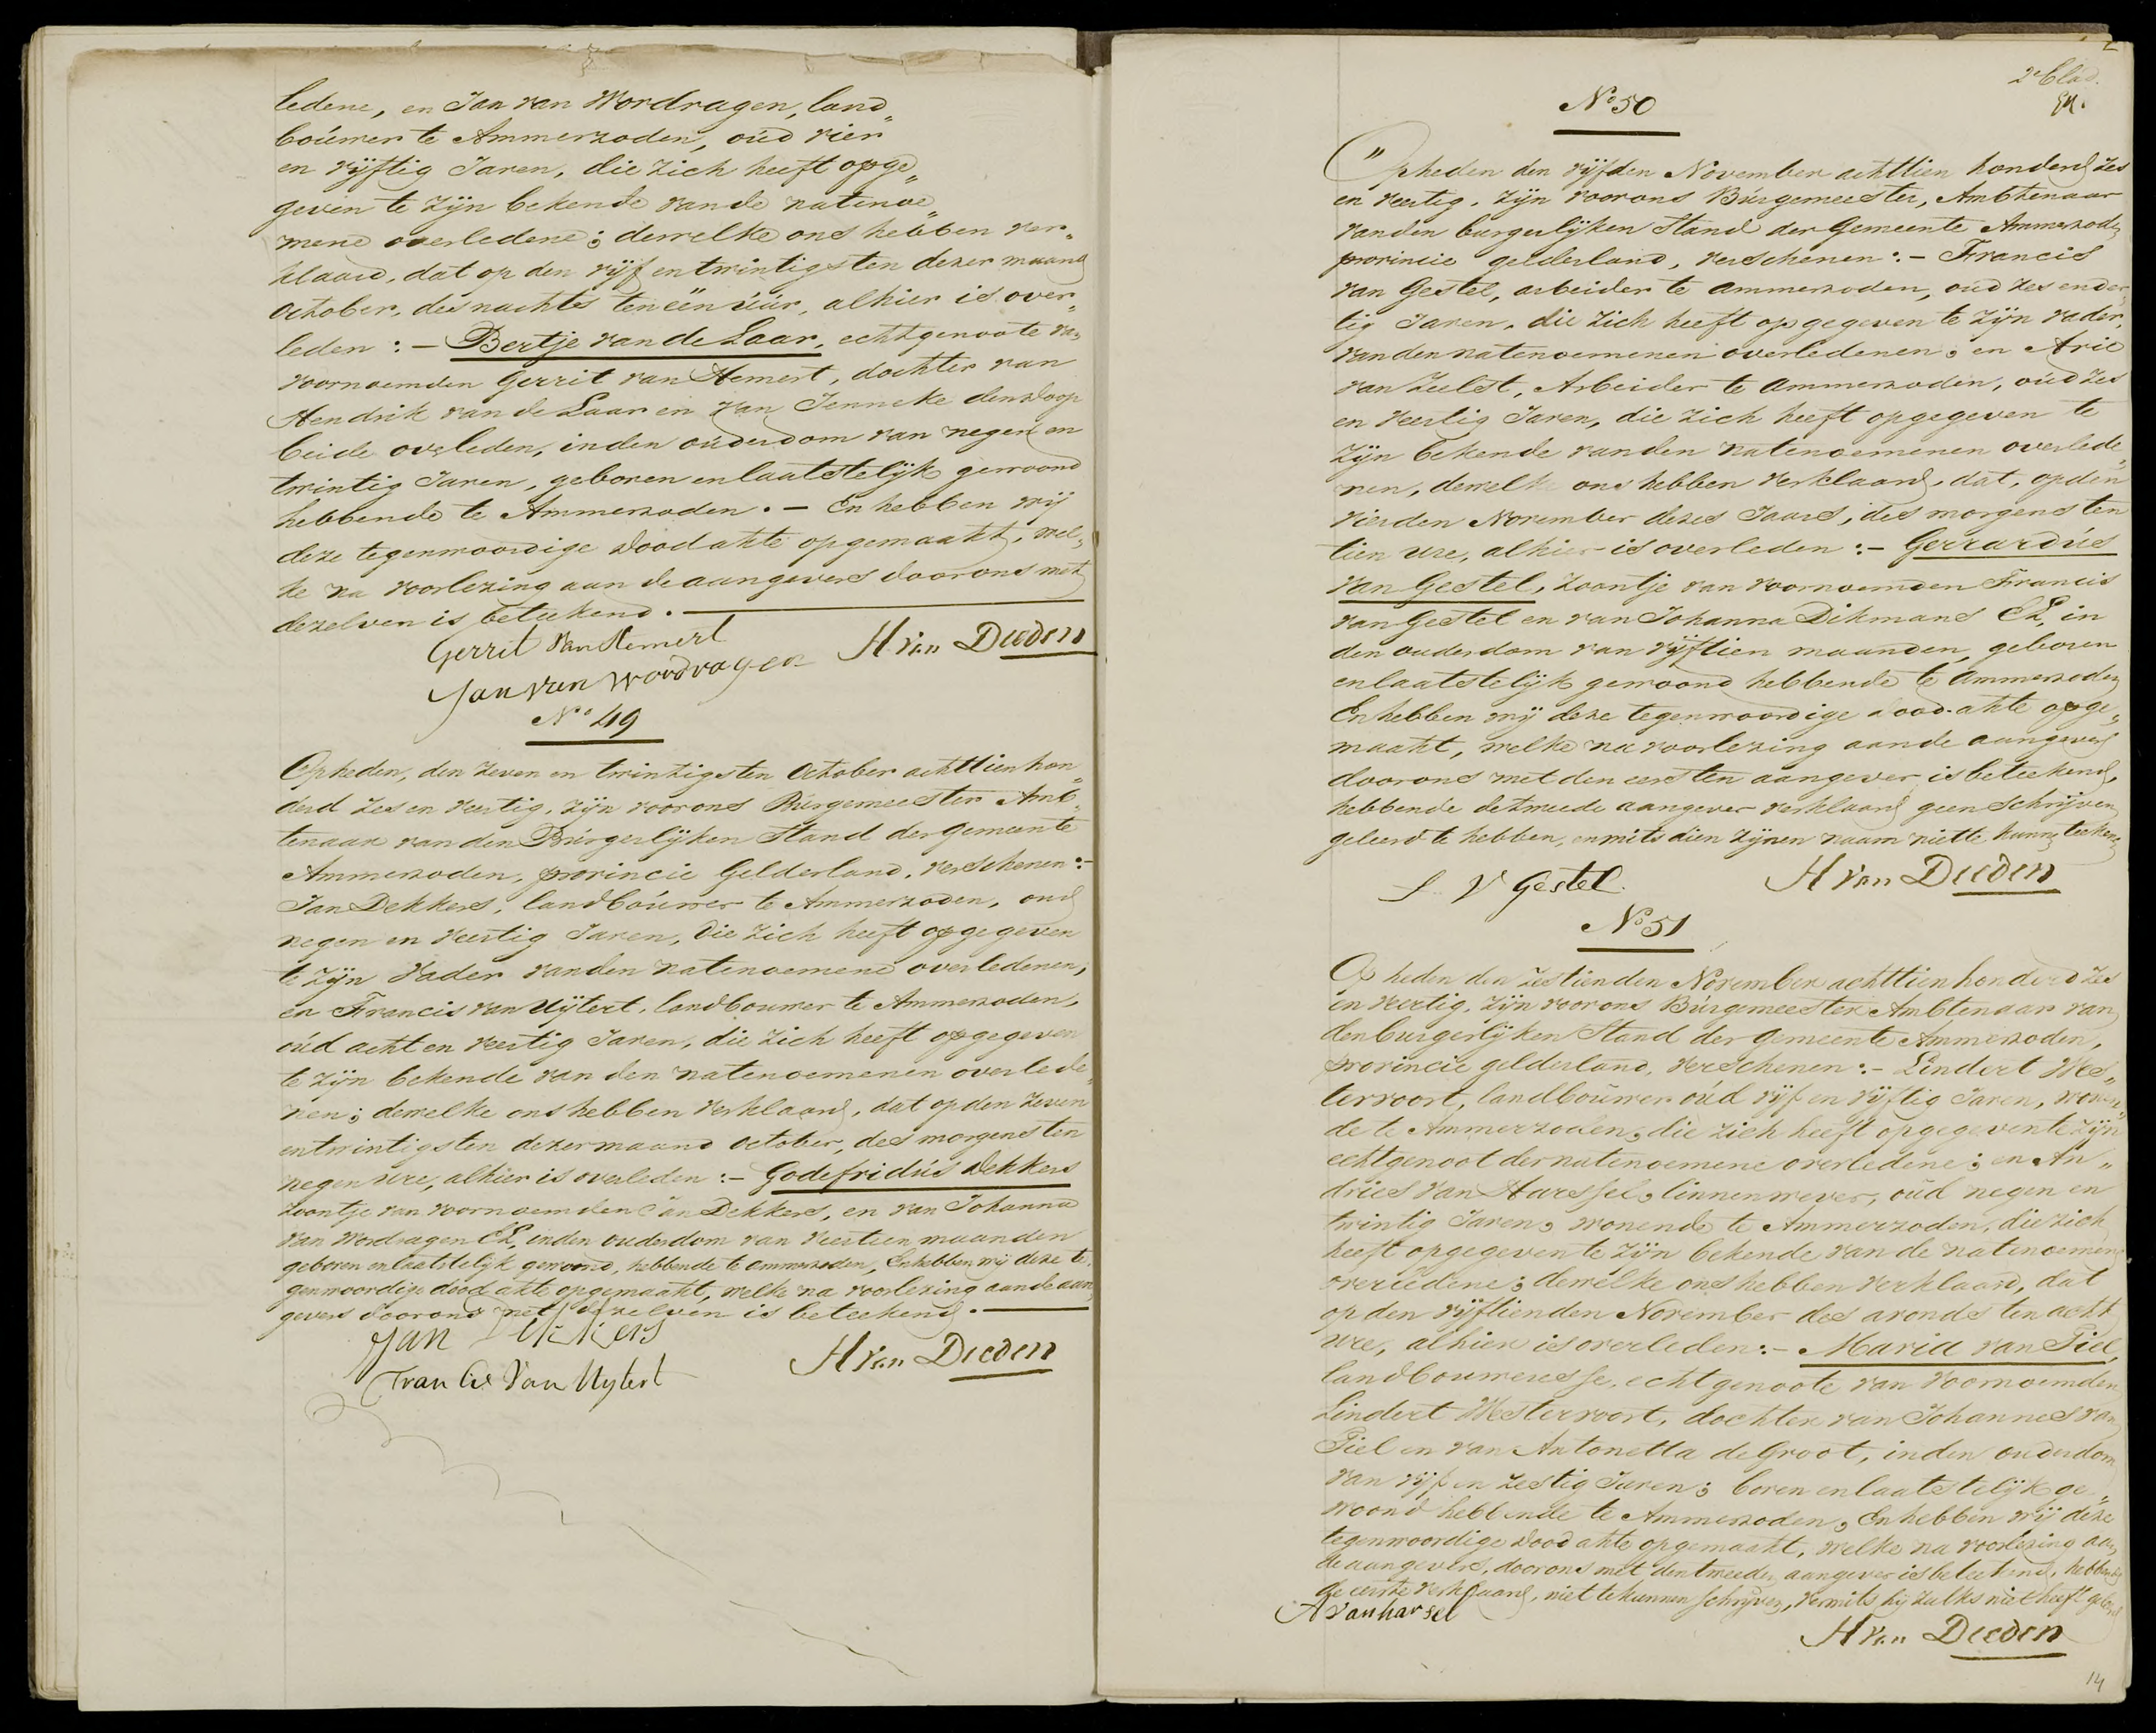 ledene, en Jan van Wordragen, land„
bouwer te Ammerzoden, oud vier
en vijftig Jaren, die zich heeft opge„
geven te zijn bekende vande natenoe„
mene overledene; dewelke ons hebben ver„
klaard, dat op den vijf en twintigsten dezer maand
October, des nachts ten één uur, alhier is over„
leden :— Bertje van de Laar, echtgenoote van
voornoemden Gerrit van Hemert, dochter van
Hendrik van de Laar en van Jenneke den Doop
beide overleden, in den ouderdom van negen en
twintig Jaren, geboren en laatstelijk gewoond
hebbende te Ammerzoden. — En hebben wij
deze tegenwoordige dood akte opgemaakt, wel„
ke na voorlezing aan de aangevers door ons met
dezelven is beteekend. —
Gerrit van Hemert H van Dieden
Jan van Woordragen
No 49
Op heden, den zeven en twintigsten October achttienhon„
derd zes en veertig, zijn voor ons Burgemeester Amb„
tenaar van den Burgerlijken Stand der Gemeente
Ammerzoden, provincie Gelderland, verschenen :—
Jan Dekkers, landbouwer te Ammerzoden, oud
negen en veertig Jaren, die zich heeft opgegeven
te zijn Vader van den natenoemene overledenen,
en Francis van Uijtert, landbouwer te Ammerzoden,
oud acht en veertig Jaren, die zich heeft opgegeven
te zijn bekende van den natenoemenen overlede„
nen; dewelke ons hebben verklaard, dat op den zeven
en twintigsten dezer maand October, des morgens ten
negen ure, alhier is overleden :— Godefridús Dekkers
zoontje van voornoemden Jan Dekkers, en van Johanna
van Wordragen EL, in den ouderdom van veertien maanden
geboren en laatstelijk gewoond, hebbende te Ammerzoden, En hebben wij deze te„
genwoordige dood akte opgemaakt, welke na voorlezing aan de aan„
gevers door ons met dezelven is beteekend. —
Jan Dekkers
Francis Van Uytert H van Dieden
2e blad.
No 50
Op heden den vijfden November achttien honderd zes
en veertig, zijn voor ons Burgemeester, Ambtenaar
van den burgerlijken Stand der Gemeente Ammerzoden
provincie gelderland, verschenen :— Francis
van Gestel, arbeider te Ammerzoden, oud zes en der„
tig Jaren, die zich heeft opgegeven te zijn vader,
van den natenoemenen overledenen; en Arie
van Zeelst, Arbeider te Ammerzoden, oud zes
en veertig Jaren, die zich heeft opgegeven te
zijn bekende van den natenoemenen overlede„
nen, dewelke ons hebben verklaard, dat, op den
vierden November dezes Jaars, des morgens ten
tien ure, alhier is overleden :— Gerrardús
van Gestel, zoontje van voornoemden Francis
van Gestel en van Johanna Dikmans EL, in
den ouderdom van vijftien maanden, geboren
en laatstelijk gewoond hebbende te Ammerzoden
En hebben wij deze tegenwoordige dood-akte opge„
maakt, welke na voorlezing aan de aangevers
door ons met den eersten aangever is beteekend,
hebbende de tweede aangever verklaard geen schrijven
geleerd te hebben, en mits dien zijnen naam niet te kunnen teekenen
V Gestel H van Dieden
No 51
Op heden den zestienden November achttien honderd zes
en veertig, zijn voor ons Burgemeester Ambtenaar van
den burgerlijken Stand der Gemeente Ammerzoden,
provincie gelderland, verschenen :— Lindert Wes„
tervoort, landbouwer oud vijf en vijftig Jaren, wonen„
de te Ammerzoden, die zich heeft opgegeven te zijn
echtgenoot der natenoemene overledene; en An„
dries van Harssel, linnenwever, oud negen en
twintig Jaren, wonende te Ammerzoden, die zich
heeft opgegeven te zijn bekende van de natenoemene
overledene; dewelke ons hebben verklaard, dat
op den vijftienden November des avonds ten acht
ure, alhier is overleden :— Maria van Tiel,
landbouweresse, echtgenoote van voornoemden
Lindert Westervoort, dochter van Johannes van
Tiel en van Antonetta de Groot, in den ouderdom
van vijf en zestig Jaren; boren en laatstelijk ge„
woond hebbende te Ammerzoden, En hebben wij deze
tegenwoordige dood akte opgemaakt, welke na voorlezing aan
de aangevers, door ons met den tweeden aangever is beteekend, hebbende
de eerste verklaard, niet te kunnen schrijven, vermits hij zulks niet heeft geleerd
A van harsel
H van Dieden
14